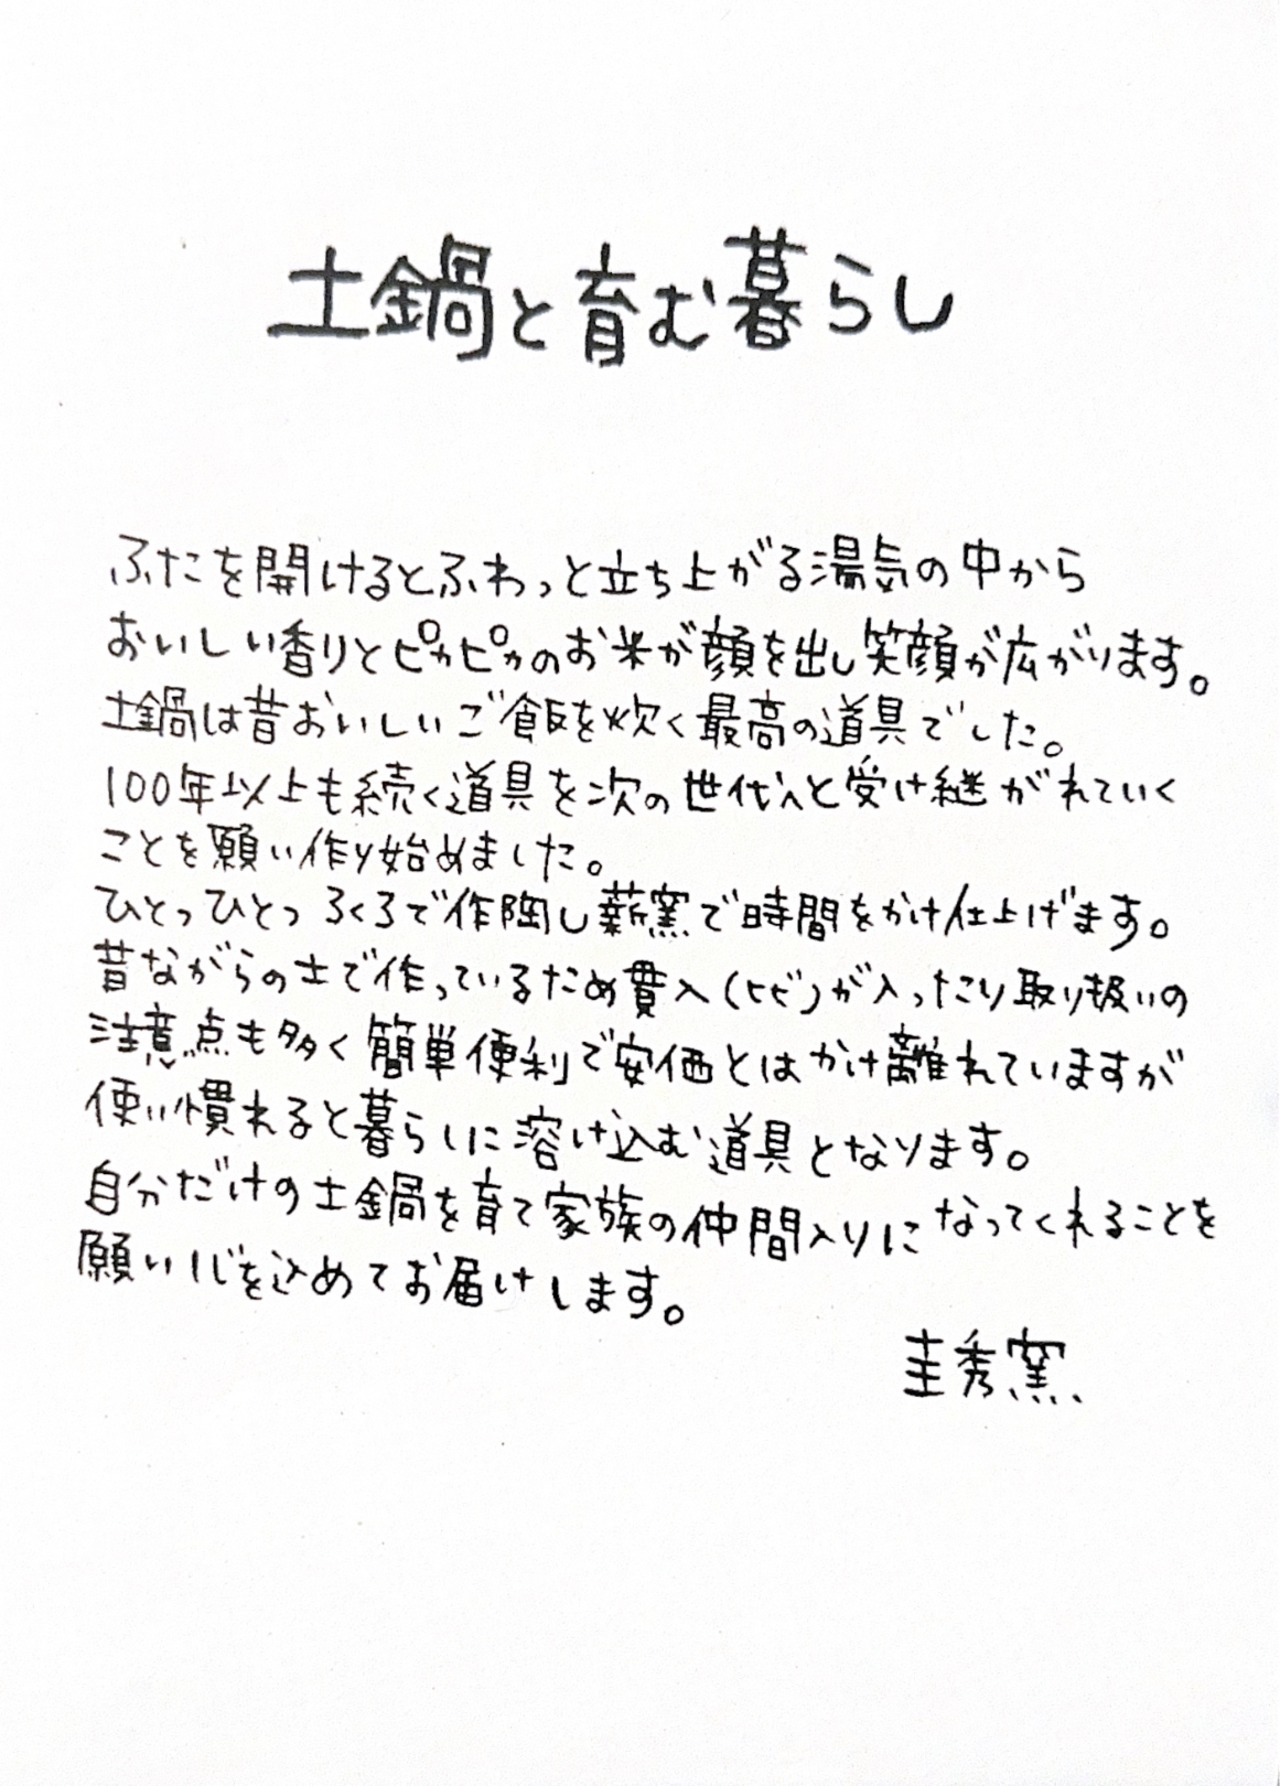 土鍋と育む暮らし
ふたを開けるとふわっと立ち上がる湯気の中から
おいしい香りとピカピカのお米が顔を出し笑顔が広がります。
土鍋は昔おいしいご飯を炊く最高の道具でした。
100年以上も続く道具を次の世代へと受け継がれていく
ことを願い作り始めました。
ひとつひとつろくろで作陶し薪窯で時間をかけ仕上げます。
昔ながらの土で作っているため貫入(ヒビ)が入ったり取り扱いの
注意点も多く簡単便利で安価とはかけ離れていますが
使い慣れると暮らしに溶け込む道具となります。
自分だけの土鍋を育て家族の仲間入りになってくれることを
願い心を込めてお届けします。
圭秀窯